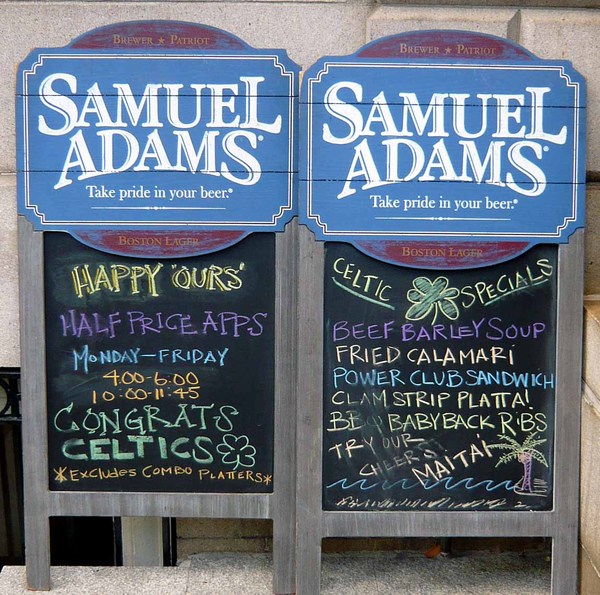 BREWER ★ PATRIOT
SAMUEL
ADAMS®
Take pride in your beer.®
BOSTON LAGER
HAPPY 'OURS'
HALF PRICE APPS
MONDAY-FRIDAY
4:00-6:00
10:00-11:45
CONGRATS
CELTICS
*EXCLUDES COMBO PLATTERS*
BREWER ★ PATRIOT
SAMUEL
ADAMS®
Take pride in your beer.®
BOSTON LAGER
CELTIC SPECIALS
BEEF BARLEY SOUP
FRIED CALAMARI
POWER CLUB SANDWICH
CLAM STRIP PLATTA'
BBQ BABY BACK RIBS
TRY OUR
CHEERS
MAITAI